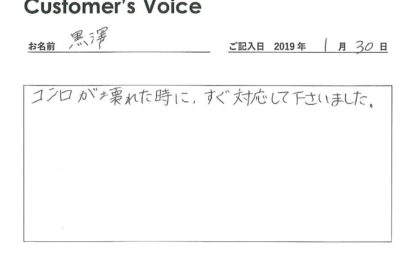 Customer's Voice
お名前 黒澤 ご記入日 2019 年 1 月 30 日
コンロが壊れた時に、すぐ対応して下さいました。